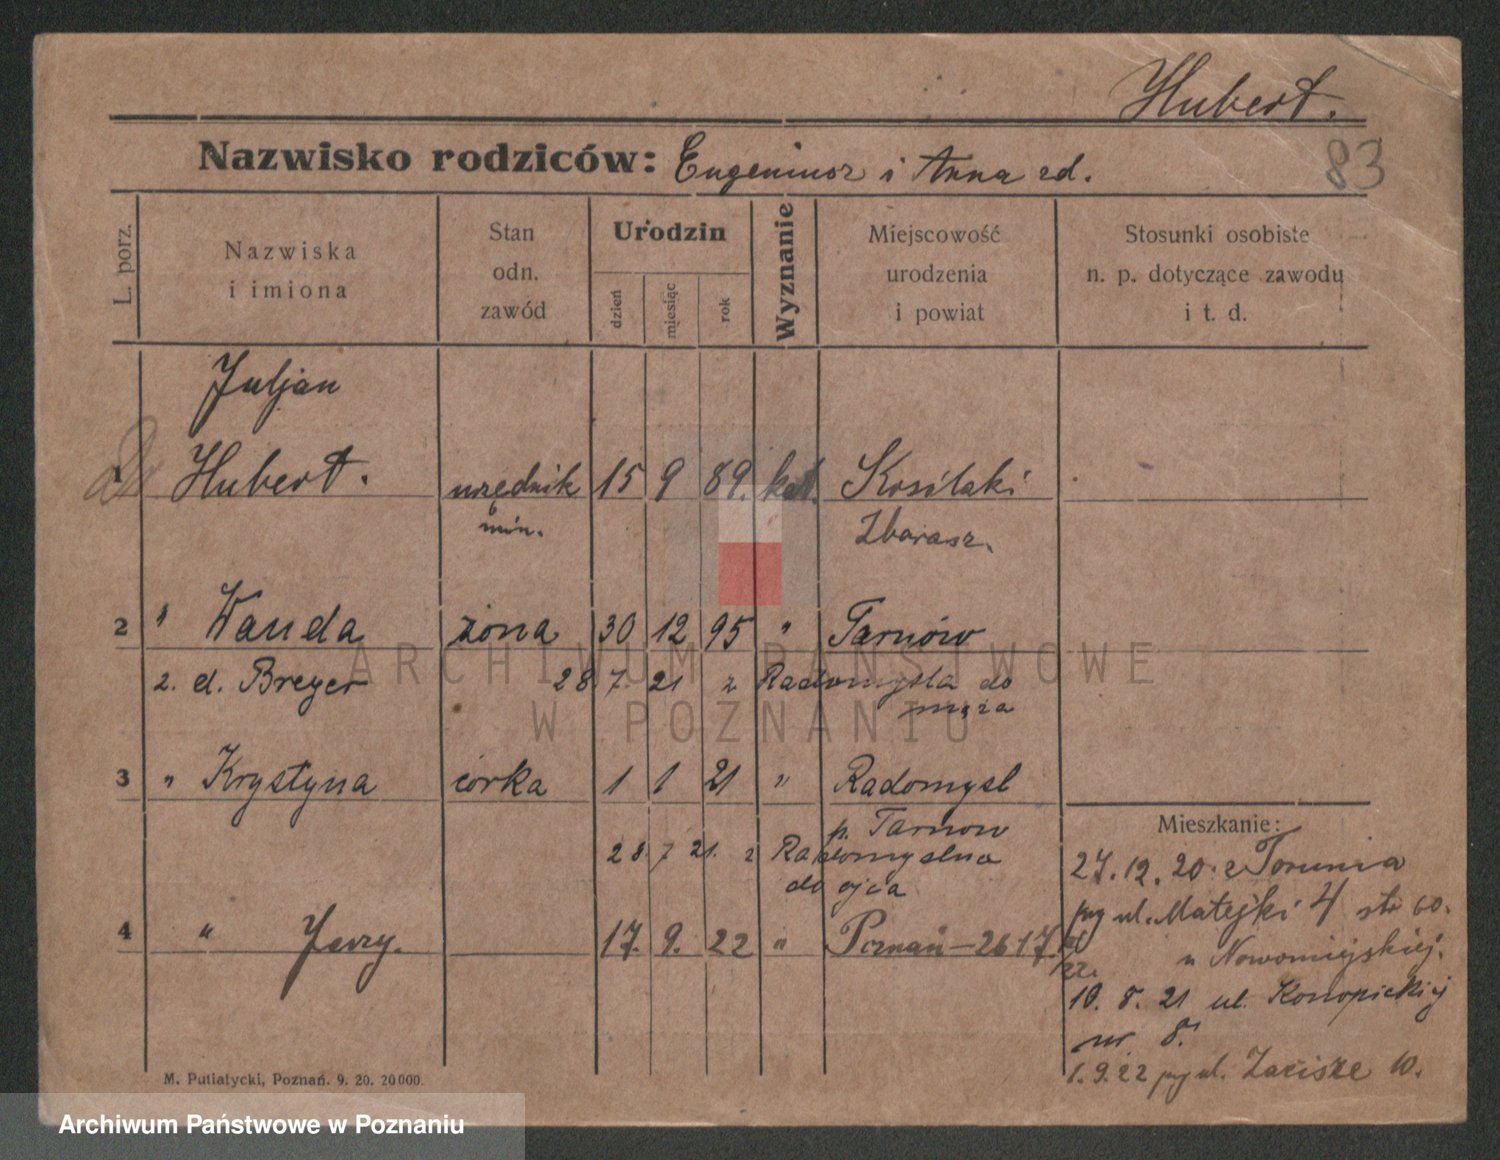 Hubert.
Nazwisko rodziców: Eugeniusz i Anna zd.
83
L. porz.
Nazwiska
i imiona
Stan
odn.
zawód
Urodzin
dzień
miesiąc
rok
Wyznanie
Miejscowość
urodzenia
i powiat
Stosunki osobiste
n. p. dotyczące zawodu
i t. d.
Juljan
1 Hubert. urzędnik 15 9 89. kat. Kosilaki
min. Zbarasz.
2 " Wanda żona 30 12 95 " Tarnów
z. d. Breyer 28. 7. 21 z Radomyśla do
męża
3 " Krystyna córka 1 1 21 " Radomysl
p. Tarnow
28. 7 21. z Radomyslna
do ojca
4 " Jerzy. 17. 9. 22 " Poznań — 2617
Mieszkanie:
27. 12. 20. z Torunia
przy ul. Matejki 4 str 60.
u Nowomiejskiej.
10. 8. 21 ul. Konopickiej
nr. 8.
1. 9. 22 przy ul. Zacisze 10.
M. Putiatycki, Poznań. 9. 20. 20000.
ARCHIWUM PAŃSTWOWE
W POZNANIU
Archiwum Państwowe w Poznaniu